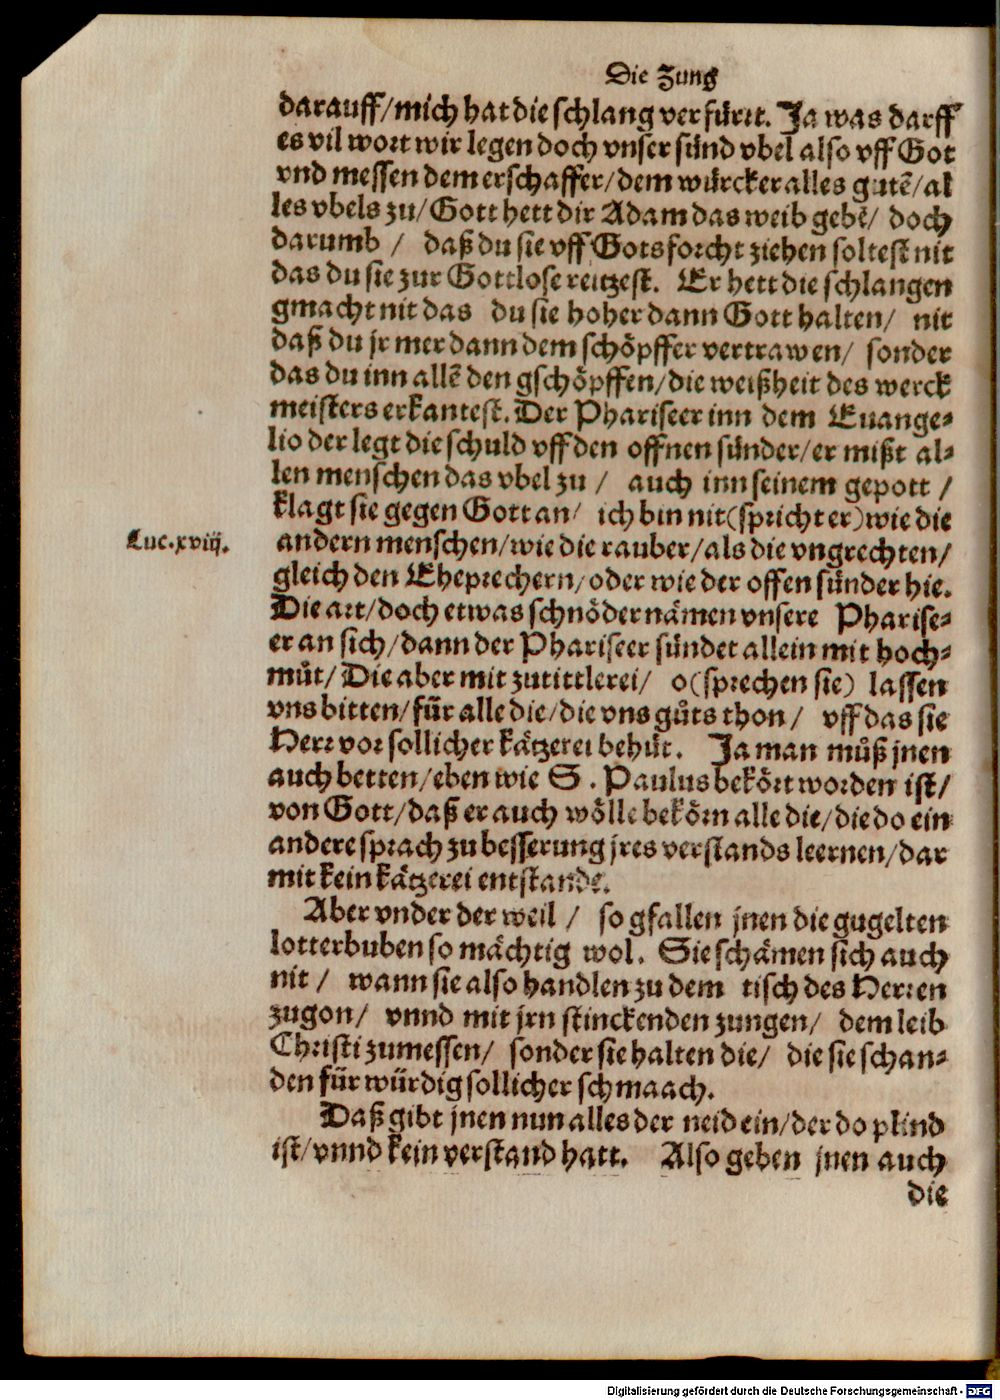 Die Zung
darauff/mich hat die schlang verfürt. Ja was darff
es vil wort wir legen doch vnser sünd vbel also vff Got
vnd messen dem erschaffer/dem würcker alles gutē/al
les vbels zu/Gott hett dir Adam das weib gebē/ doch
darumb / daß du sie vff Gots forcht ziehen soltest nit
das du sie zur Gottlose reitzest. Er hett die schlangen
gmacht nit das du sie hoher dann Gott halten/ nit
daß du jr mer dann dem schöpffer vertrawen/ sonder
das du inn allē den gschöpffen/die weißheit des werck
meisters erkantest. Der Phariseer inn dem Euange⸗
lio der legt die schuld vff den offnen sünder/er mißt al⸗
len menschen das vbel zu / auch inn seinem gepott /
klagt sie gegen Gott an/ ich bin nit(spricht er)wie die
Luc.xviij.
andern menschen/wie die rauber/als die vngrechten/
gleich den Eheprechern/oder wie der offen sünder hie.
Die art/doch etwas schnöder nämen vnsere Pharise⸗
er an sich/dann der Phariseer sündet allein mit hoch⸗
můt/Die aber mit zutittlerei/ o(sprechen sie) lassen
vns bitten/für alle die/die vns gůts thon/ vff das sie
Herr vor sollicher kätzerei behüt. Ja man můß jnen
auch betten/eben wie S. Paulus bekört worden ist/
von Gott/daß er auch wölle bekörn alle die/die do ein
andere sprach zu besserung jres verstands leernen/dar
mit kein kätzerei entstande.
Aber vnder der weil / so gfallen jnen die gugelten
lotterbuben so mächtig wol. Sie schämen sich auch
nit / wann sie also handlen zu dem tisch des Herren
zugon/ vnnd mit jrn stinckenden zungen/ dem leib
Christi zumessen/ sonder sie halten die/ die sie schan⸗
den für würdig sollicher schmaach.
Daß gibt jnen nun alles der neid ein/der do plind
ist/vnnd kein verstand hatt. Also geben jnen auch
die
Digitalisierung gefördert durch die Deutsche Forschungsgemeinschaft - DFG